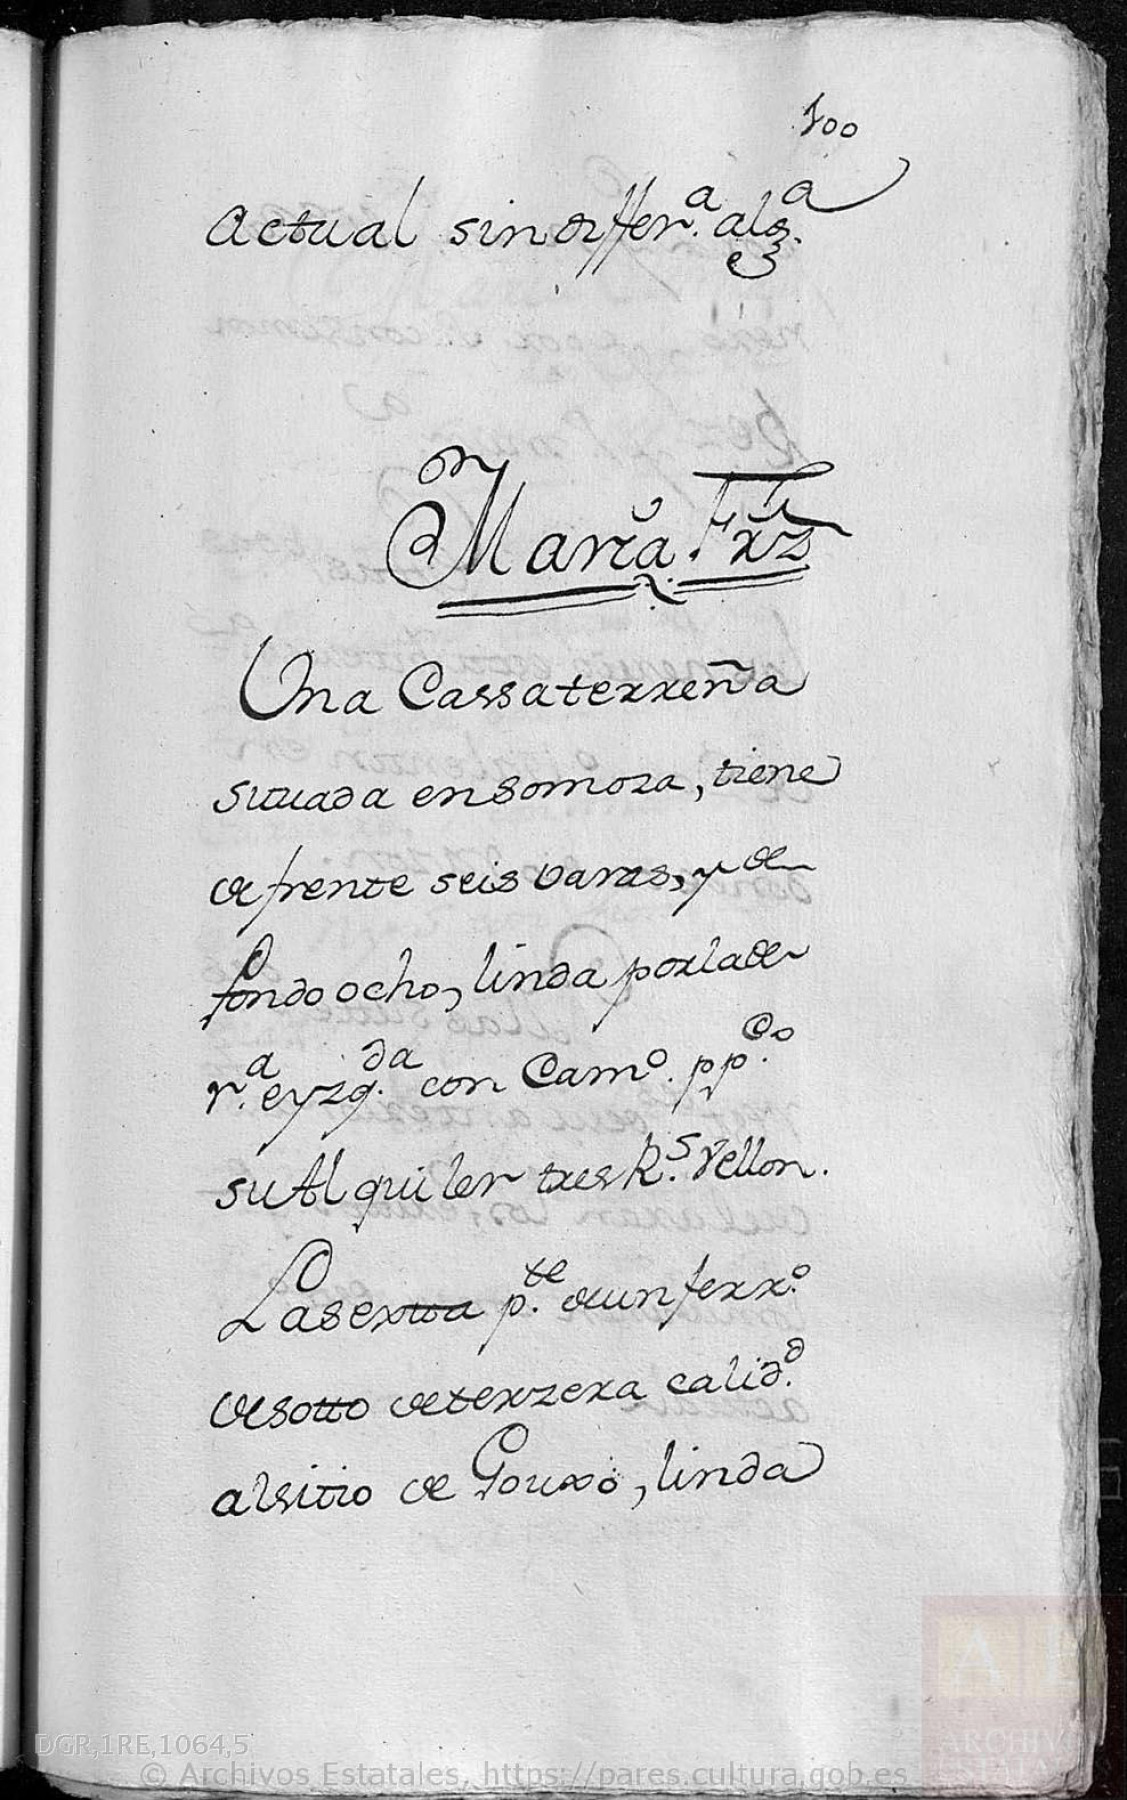 100
Actual sin differ.ª alg.ª
Maria Frz
Una Cassa terreña
situada en somoza, tiene
de frente seis varas, y de
fondo ocho, linda por la de
r.ª e yzq.da con Cam.º pp.co
su Alquiler tres R.s Vellon.
La sexta p.te de un ferr.º
de sotto de terzera calid.d
al sitio de Gouxo, linda
DGR,1RE,1064,5
© Archivos Estatales, https://pares.cultura.gob.es